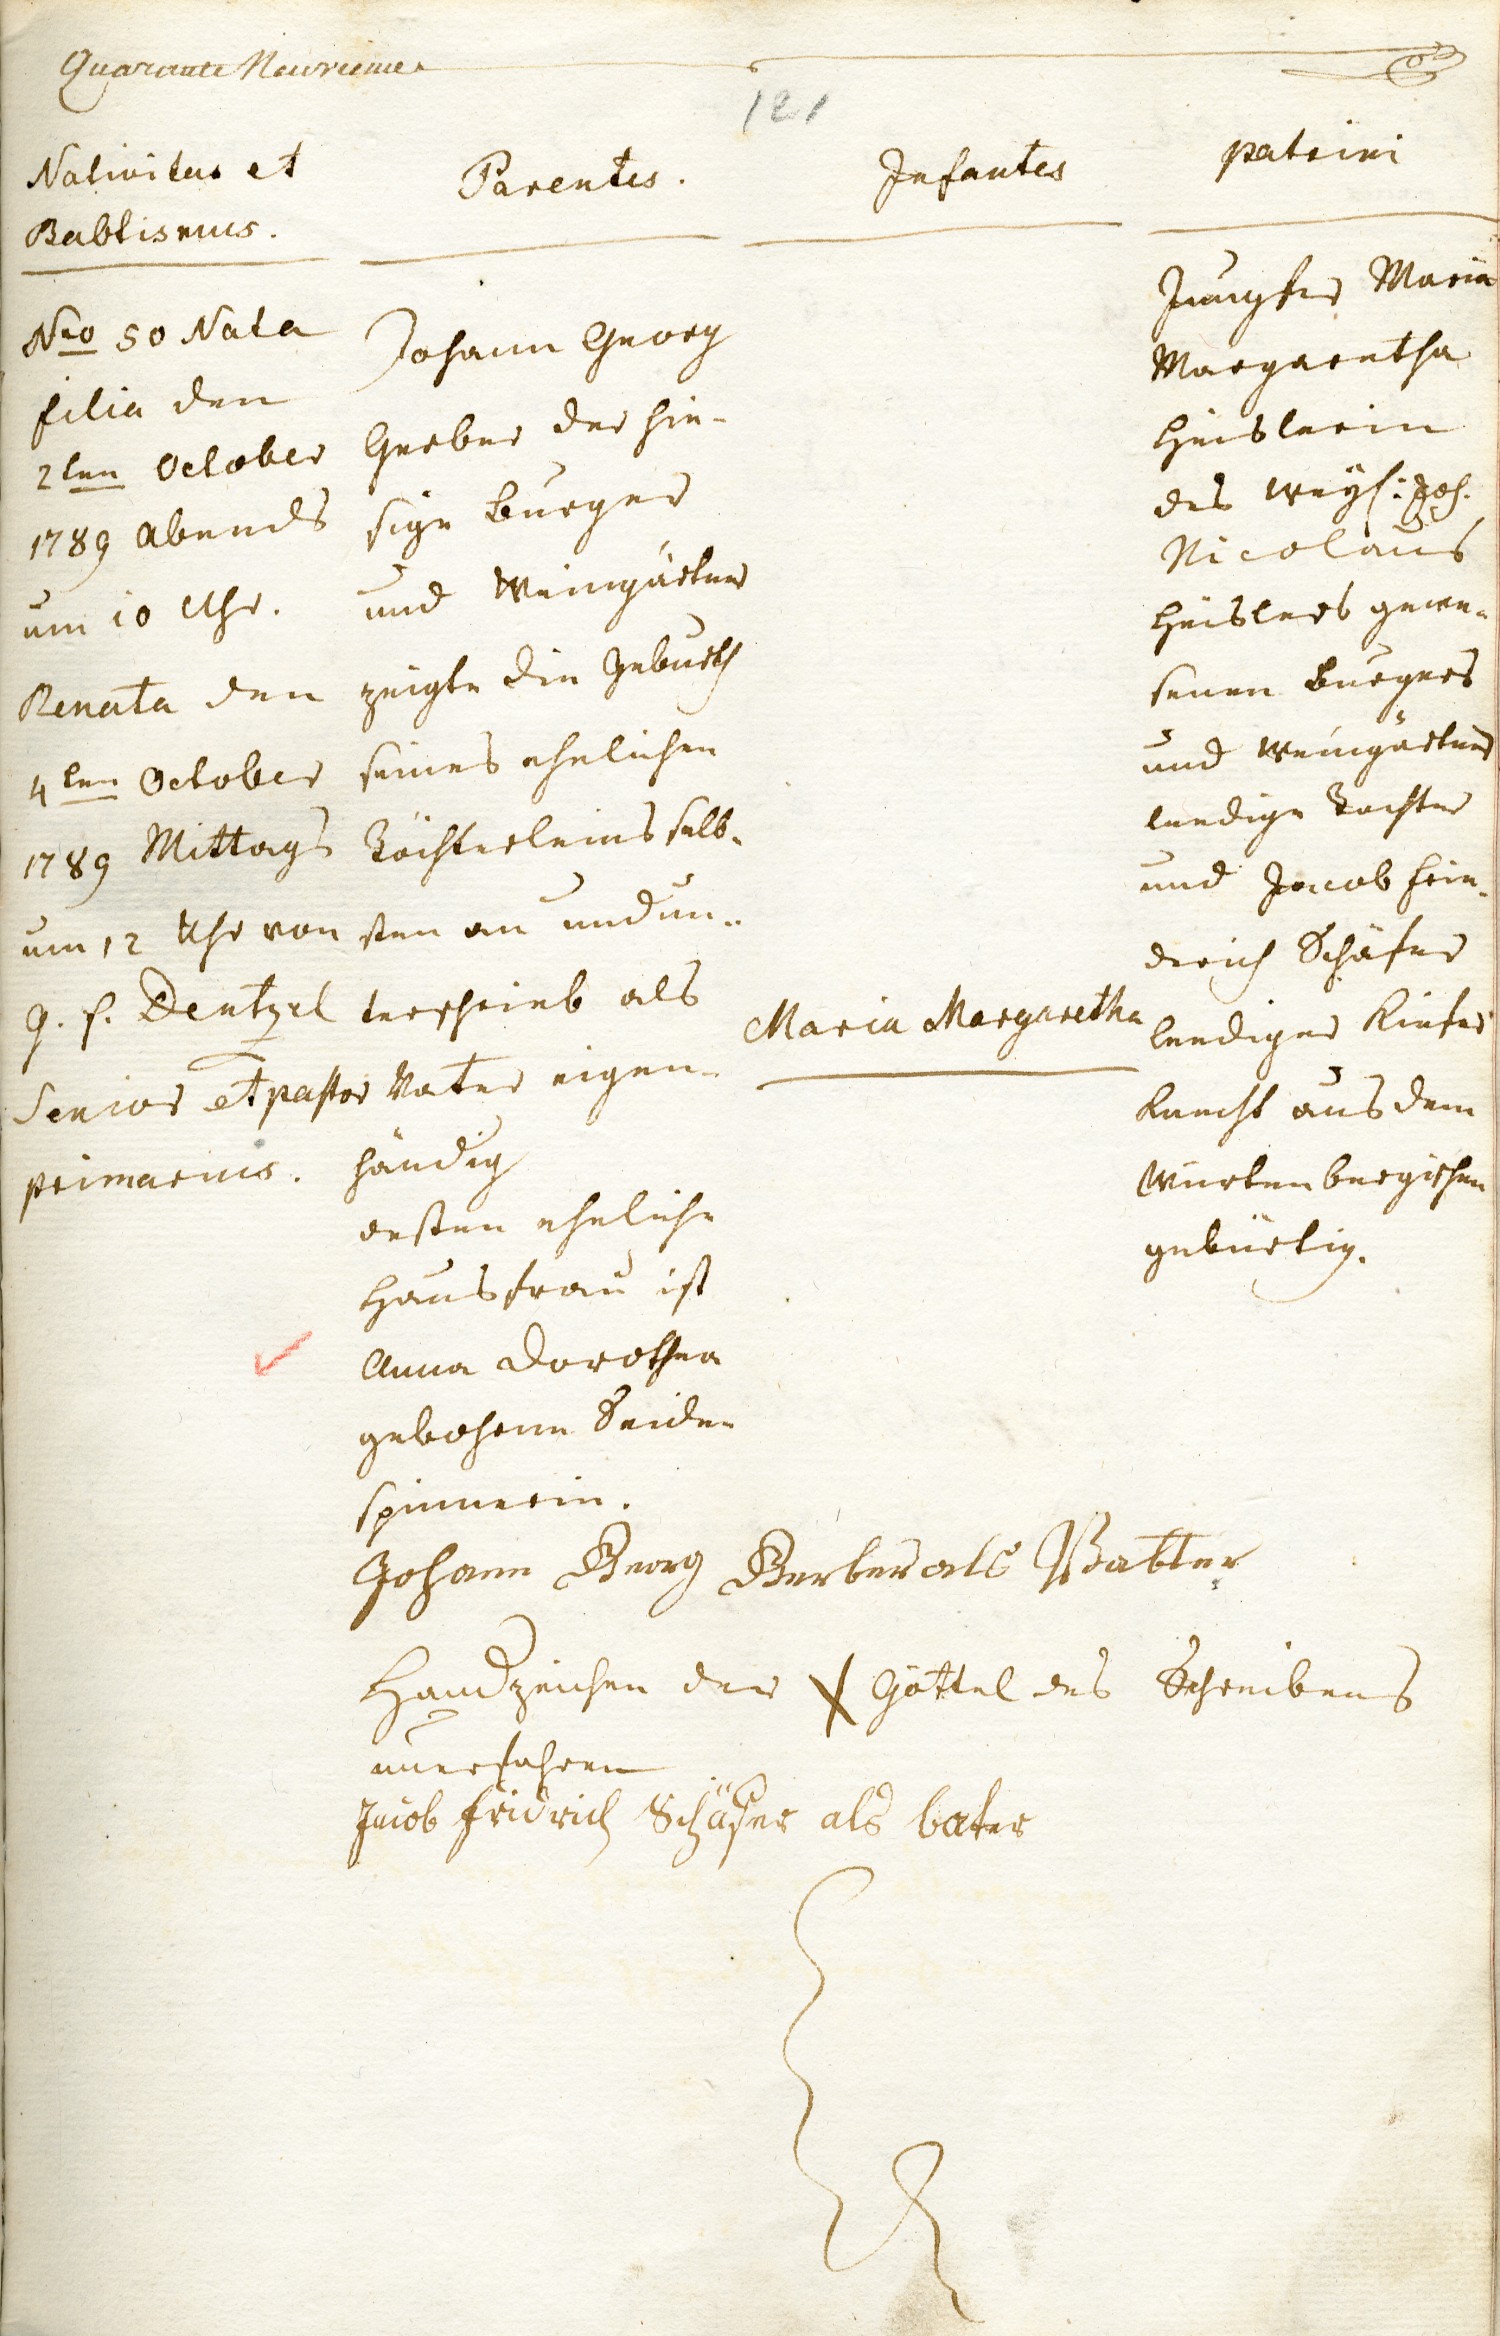 Quarante Neuvieme
121
Nativitas et
Babtismus.
Parentes.
Infantes
patrini
Nro 50 Nata
filia den
2ten October
1789 Abends
um 10 Uhr.
Renata den
4ten October
1789 Mittags
um 12 Uhr von
g. f. Dentzel
Senior et pastor
primarius.
Johann Georg
Gerber der hie-
sige Burger
und Weingärtner
zeigte die Geburth
seines ehelichen
Töchterleins selb-
sten an und un-
terschrieb als
Vater eigen-
händig
dessen eheliche
Hausfrau ist
Anna Dorothea
gebohrne Seiden-
spinnerin.
Maria Margaretha
Jungfer Maria
Margaretha
Heislerin
des weyl: Joh.
Nicolaus
Heislers gewe-
senen Burgers
und Weingärtner
leedige Tochter
und Jacob Frie-
derich Schäfer
leediger Kiefer
Knecht aus dem
Würtenbergischen
gebürtig.
Johann Georg Gerber als Vatter
Handzeichen der X Göttel des Schreibens
unerfahren
Jacob Fridrich Schäfer als